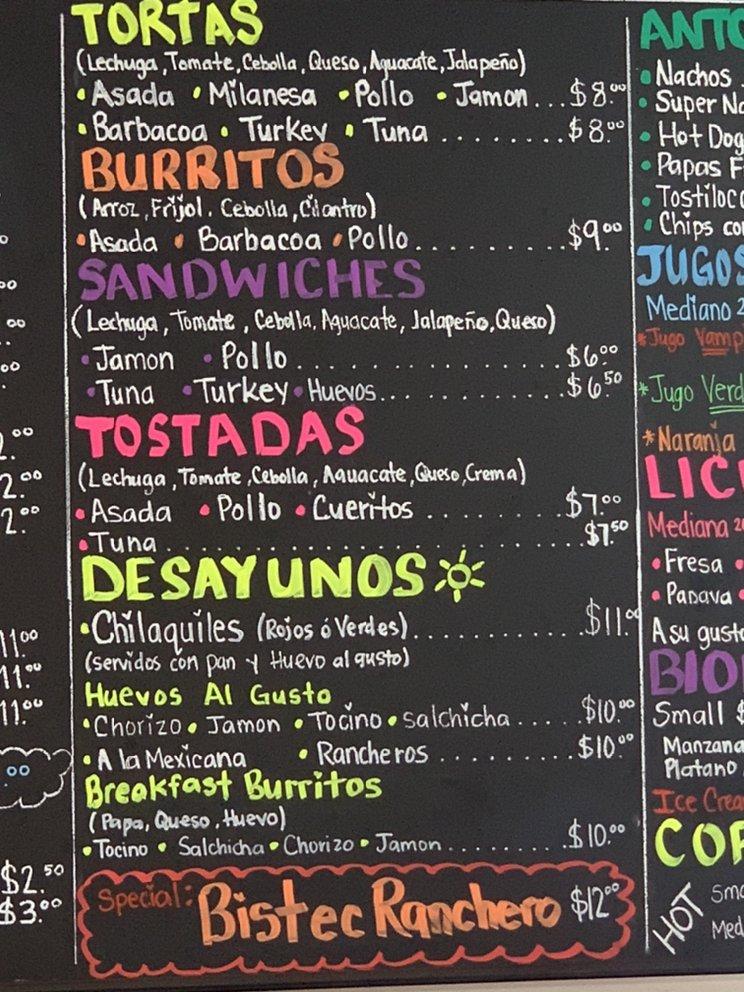 TORTAS
(Lechuga, Tomate, Cebolla, Queso, Aguacate, Jalapeño)
• Asada • Milanesa • Pollo • Jamon...$8.00
• Barbacoa • Turkey • Tuna ........$8.00
BURRITOS
(Arroz, Frijol. Cebolla, Cilantro)
• Asada • Barbacoa • Pollo..........$9.00
SANDWICHES
(Lechuga, Tomate, Cebolla, Aguacate, Jalapeño, Queso)
• Jamon • Pollo................$6.00
• Tuna • Turkey • Huevos...........$6.50
TOSTADAS
(Lechuga, Tomate, Cebolla, Aguacate, Queso, Crema)
• Asada • Pollo • Cueritos ........$7.00
• Tuna......................$7.50
DESAYUNOS
• Chilaquiles (Rojos ó Verdes)...........$11.00
(servidos con pan y Huevo al gusto)
Huevos Al Gusto
• Chorizo • Jamon • Tocino • Salchicha.....$10.00
• A la Mexicana • Rancheros ........$10.00
Breakfast Burritos
(Papa, Queso, Huevo)
• Tocino • Salchicha • Chorizo • Jamon........$10.00
Special: Bistec Ranchero $12.00
2.00
2.00
11.00
11.00
11.00
$2.50
$3.00
ANTO
• Nachos
• Super Na
• Hot Dog
• Papas F
• Tostiloco
• Chips co
JUGOS
Mediano 2
*Jugo Vamp
*Jugo Verd
*Naranja
LIC
Mediana 20
• Fresa •
• Papaya •
A su gusto
BIO
Small $
Manzana
Platano
Ice Crea
COF
HOT
Sma
Med